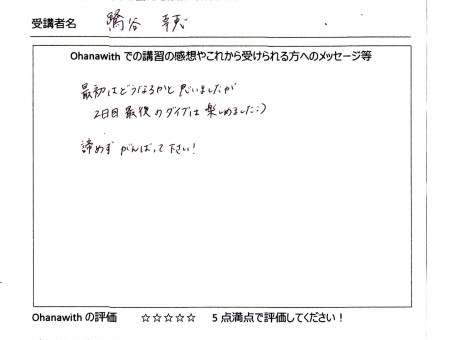 受講者名
Ohanawith での講習の感想やこれから受けられる方へのメッセージ等
最初はどうなるかと思いましたが
2日目最後のダイブは楽しめました:)
諦めずがんばって下さい!
Ohanawith の評価 ☆☆☆☆☆ 5 点満点で評価してください!